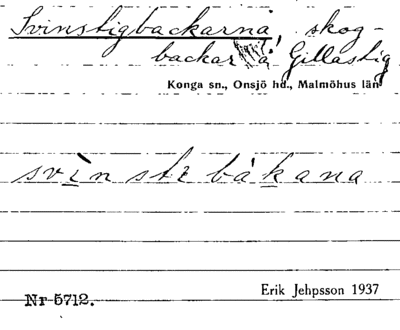 Svinstigbackarna, skog-
backar å Gillastig
Konga sn., Onsjö hd., Malmöhus län
svìn sti bàkana
Erik Jehpsson 1937
Nr 5712.